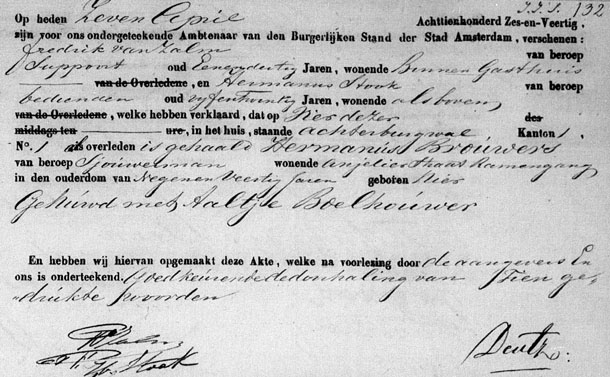 132
Op heden Zeven April Achttienhonderd Zes-en-Veertig,
zijn voor ons ondergeteekende Ambtenaar van den Burgerlijken Stand der Stad Amsterdam, verschenen:
fredrik van Zalm van beroep
Suppoost oud Eenendertig Jaren, wonende Binnen Gasthuis
van de Overledene, en Hermanus Stook van beroep
bedienden oud vyfentwintig Jaren, wonende als boven
van de Overledene, welke hebben verklaard, dat op Vier dezer des
middags ten ure, in het huis, staande achterburgwal, Kanton 1,
No. 1 is overleden is gehaald Hermanus Brouwers
van beroep Sjouwerman wonende anjelierstraat Ramengang
in den ouderdom van Negenen Veertig Jaren geboren Hier
Gehuwd met Aaltje Boelhouwer
En hebben wij hiervan opgemaakt deze Akte, welke na voorlezing door de aangevers En
ons is onderteekend. Goedkeurende de doorhaling van Tien ge-
drukte woorden
Stook
Deutz